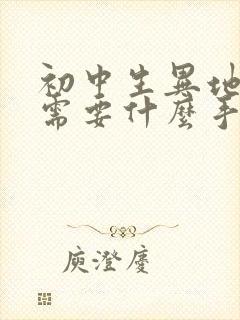 初中生异地
需要什麼手
庾澄慶